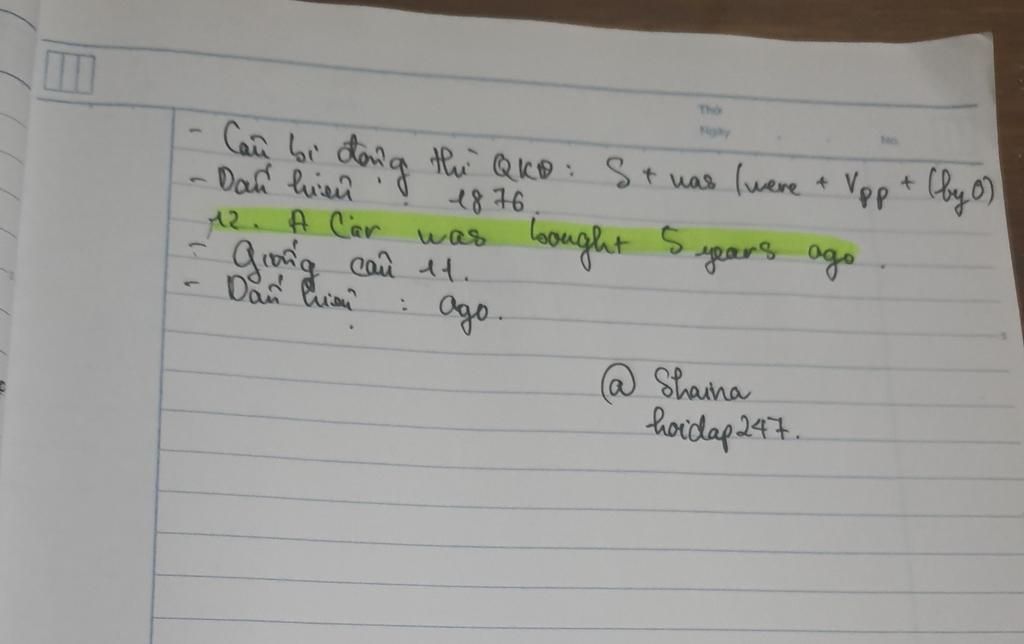 Thứ
Ngày
No.
- Câu bị động thì QKĐ: S + was / were + Vpp + (by O)
- Dấu hiệu : 1876.
12. A Car was bought 5 years ago.
- Giống câu 11.
- Dấu hiệu : ago.
@ Shaina
hoidap247.